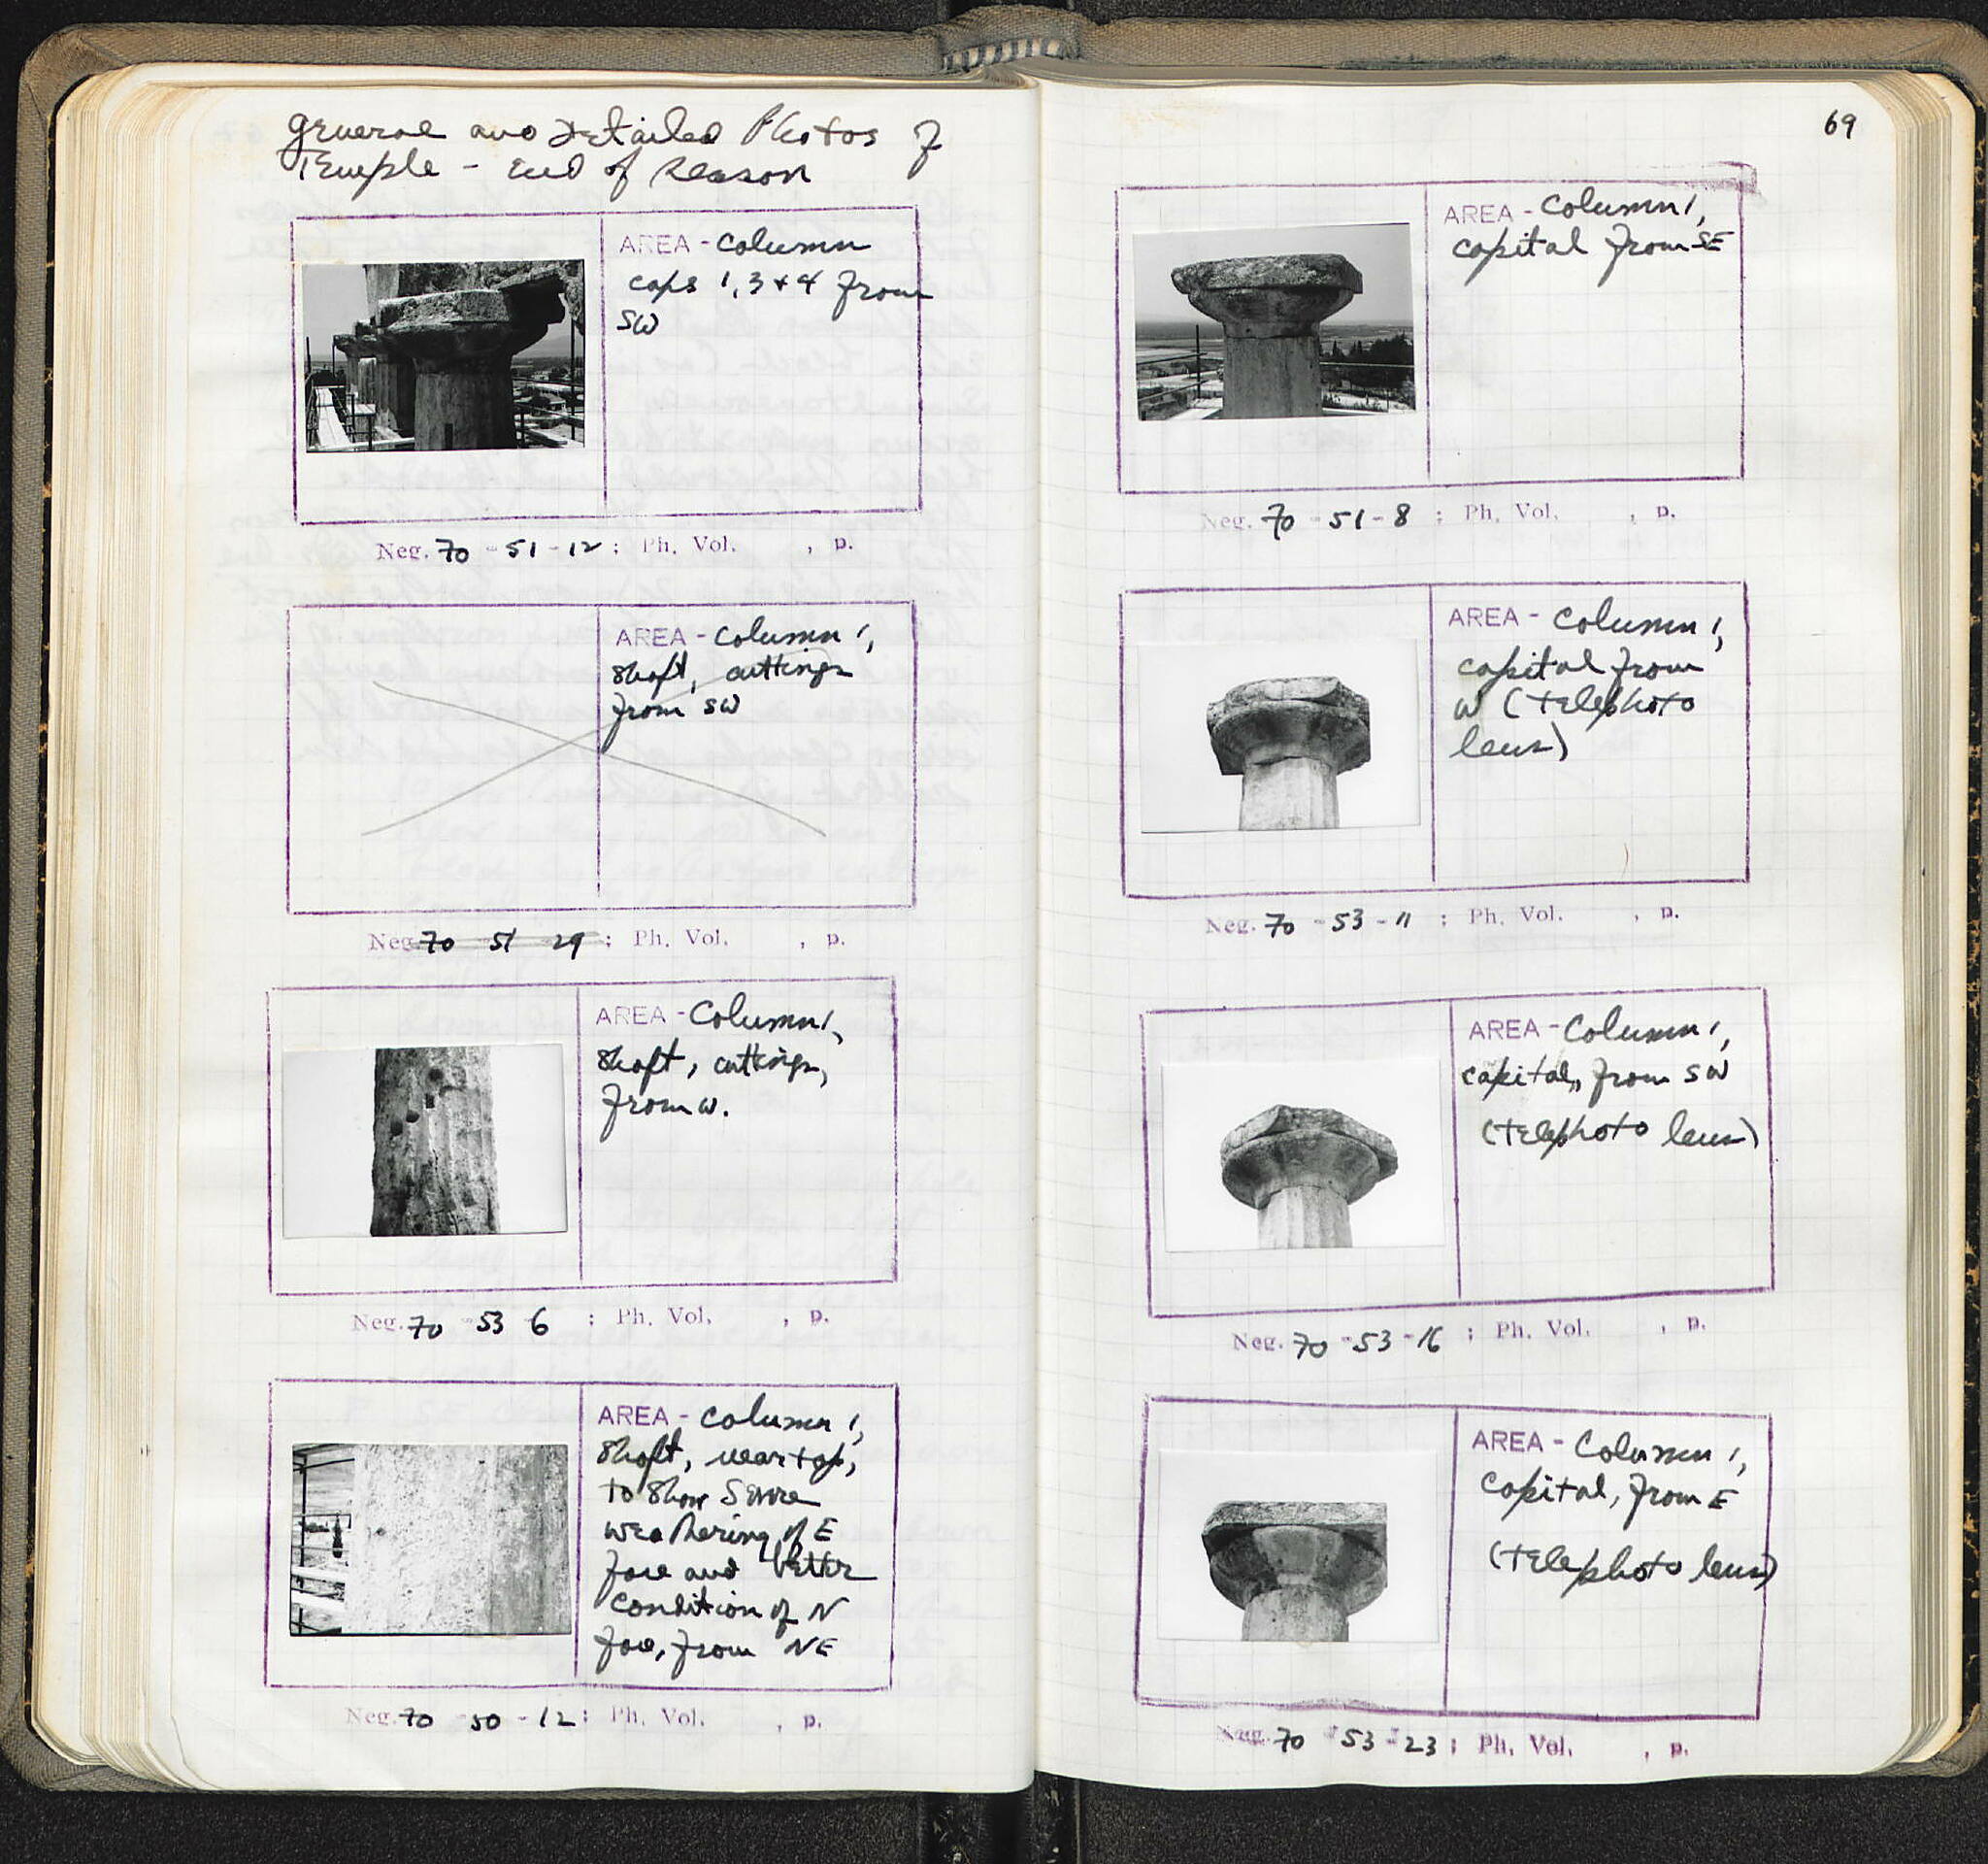 General and Detailed Photos of
Temple - End of Season
AREA - Column
caps 1, 3 + 4 from
SW
Neg. 70 - 51 - 12 ; Ph. Vol. , p.
AREA - Column 1,
shaft, cuttings
from SW
Neg. 70 51 29 ; Ph. Vol. , p.
AREA - Column 1,
shaft, cuttings,
from W.
Neg. 70 - 53 6 ; Ph. Vol. , p.
AREA - Column 1,
shaft, near top,
to show severe
weathering of E
face and better
condition of N
face, from NE
Neg. 70 - 50 - 12 ; Ph. Vol. , p.
69
AREA - Column 1,
capital from SE
Neg. 70 - 51 - 8 ; Ph. Vol. , p.
AREA - Column 1,
capital from
W (telephoto
lens)
Neg. 70 - 53 - 11 ; Ph. Vol. , p.
AREA - Column 1,
capital, from SW
(telephoto lens)
Neg. 70 - 53 - 16 ; Ph. Vol. , p.
AREA - Column 1,
capital, from E
(telephoto lens)
Neg. 70 - 53 - 23 ; Ph. Vol. , p.